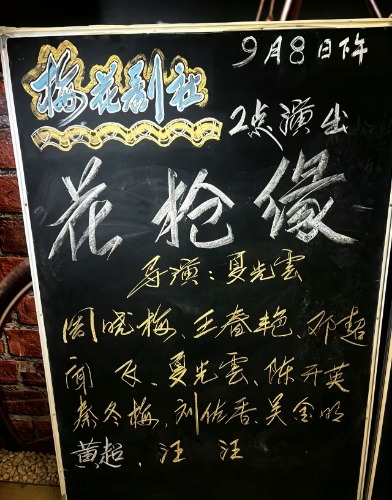 梅花剧社
9月8日下午
2点演出
花枪缘
导演：夏光雲
周晓梅、王春艳、邓超
闻 及、夏光雲、陈开英
秦冬梅、刘佐香、吴金明
黄超、汪 汪